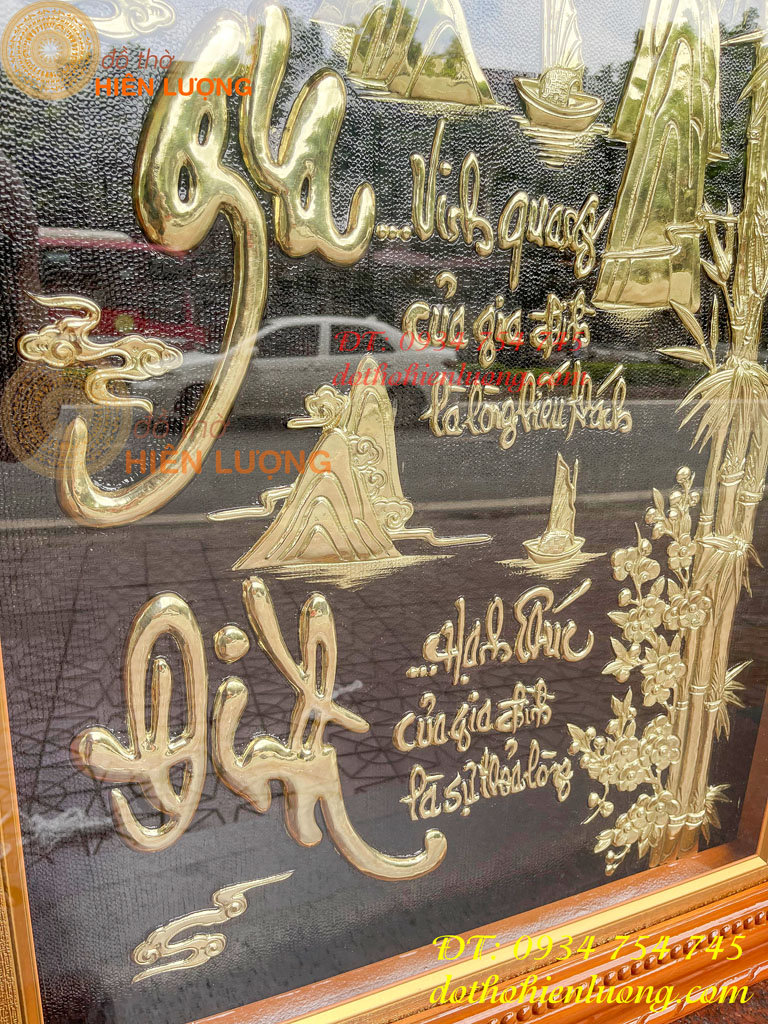 đồ thờ
HIỀN LƯỢNG
Gia
...Vinh quang
của gia đình
là lòng hiếu khách
ĐT: 0934 754 745
dothohienluong.com
đồ thờ
HIỀN LƯỢNG
Đình
...Hạnh Phúc
của gia đình
là sự thỏa lòng
ĐT: 0934 754 745
dothohienluong.com